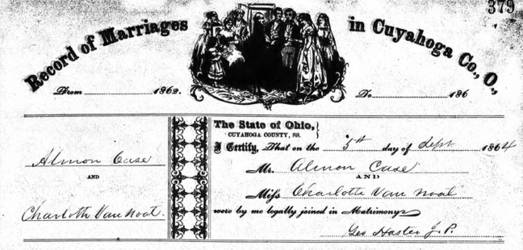 379
Record of Marriages in Cuyahoga Co., O.,
From 1862. To 186
The State of Ohio,
CUYAHOGA COUNTY, SS.
I Certify, That on the 5th day of Sept 1864
Almon Case
Mr. Almon Case
AND
AND
Miss Charlotte Van Noat
Charlotte Van Noat.
were by me legally joined in Matrimony.
Geo Hasler J.P.